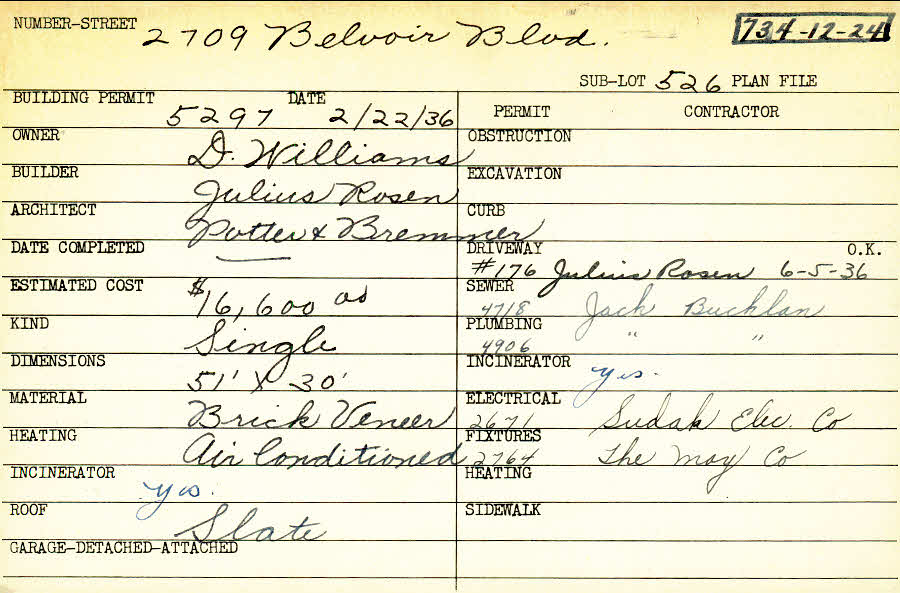 NUMBER-STREET 2709 Belvoir Blvd. 734-12-24
SUB-LOT 526 PLAN FILE
BUILDING PERMIT 5297 DATE 2/22/36
OWNER D. Williams
BUILDER Julius Rosen
ARCHITECT Potter & Bremmer
DATE COMPLETED
ESTIMATED COST $16,600 00
KIND Single
DIMENSIONS 51' X 30'
MATERIAL Brick Veneer
HEATING Air Conditioned
INCINERATOR yes.
ROOF Slate
GARAGE-DETACHED-ATTACHED
PERMIT CONTRACTOR
OBSTRUCTION
EXCAVATION
CURB
DRIVEWAY O.K.
#176 Julius Rosen 6-5-36
SEWER
4718 Jack Bucklan
PLUMBING " "
4906
INCINERATOR yes.
ELECTRICAL
2671 Sudak Elec. Co
FIXTURES
2764 The May Co
HEATING
SIDEWALK